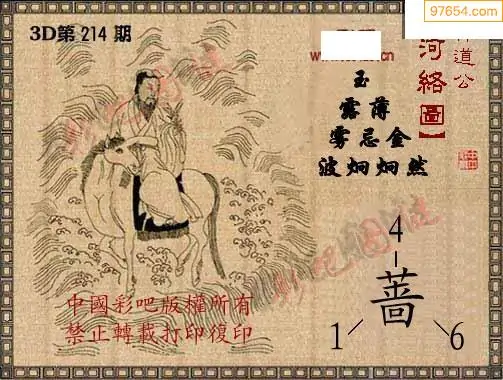 97654.com
3D第 214 期
道公
河絡圖】
玉
露薄
雾忌金
波炯炯然
4
蔷
1 6
中國彩吧版權所有
禁止轉載打印復印